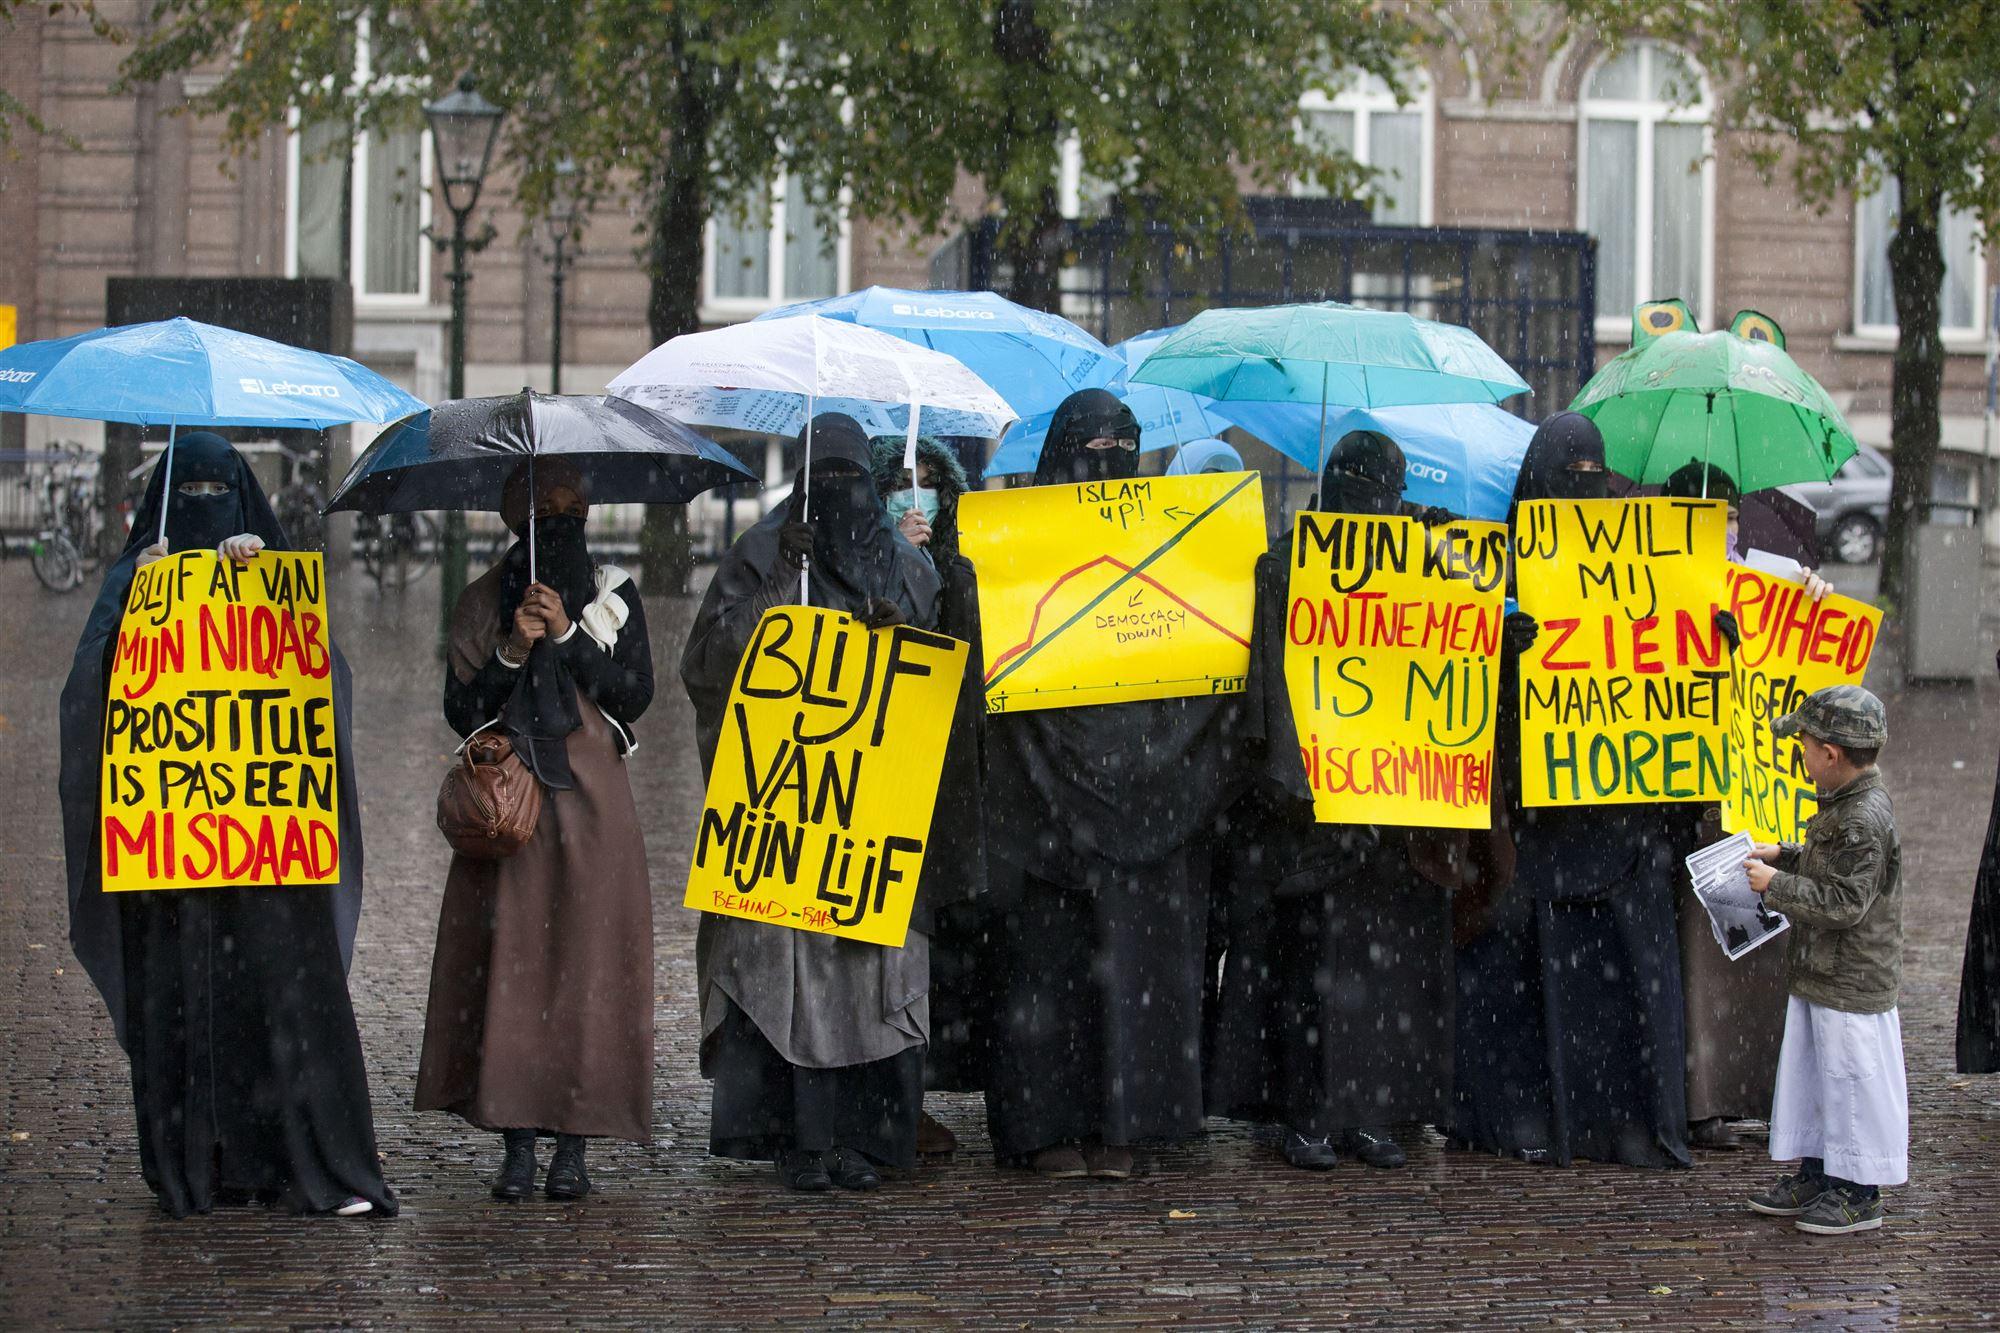 Lebara
Lebara
Lebara
BLIJF AF VAN
MIJN NIQAB
PROSTITUE
IS PAS EEN
MISDAAD
BLIJF
VAN
MIJN LIJF
BEHIND-BARS
ISLAM
UP!
DEMOCRACY
DOWN!
MIJN KEUS
ONTNEMEN
IS MIJ
DISCRIMINEREN
JIJ WILT
MIJ
ZIEN
MAAR NIET
HOREN
VRIJHEID
IS EEN
FARCE